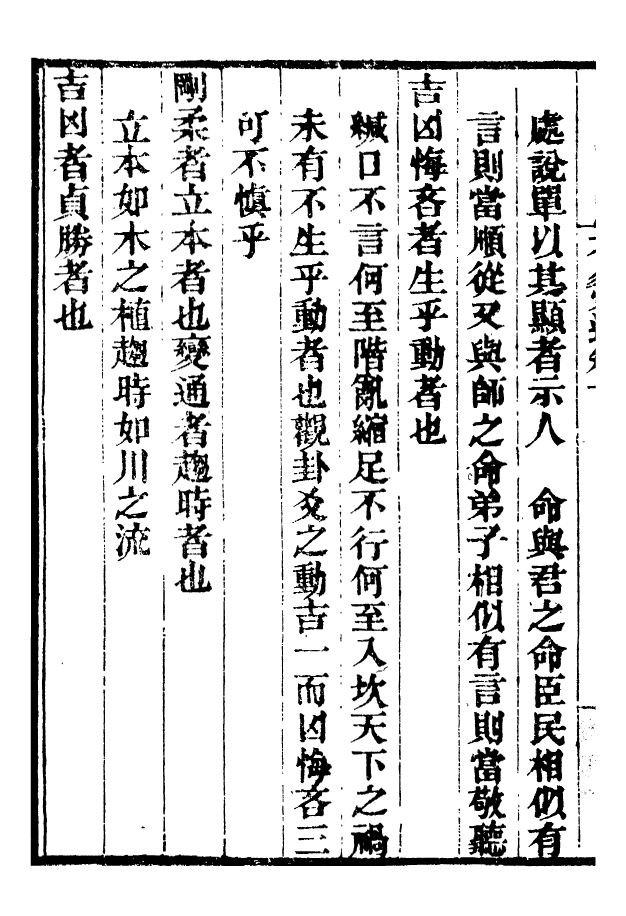 處說單以其顯者示人　命與君之命臣民相似有
言則當順從又與師之命弟子相似有言則當敬聽
吉凶悔吝者生乎動者也
緘口不言何至階亂縮足不行何至入坎天下之禍
未有不生乎動者也觀卦爻之動吉一而凶悔吝三
可不愼乎
剛柔者立本者也變通者趨時者也
立本如木之植趨時如川之流
吉凶者貞勝者也